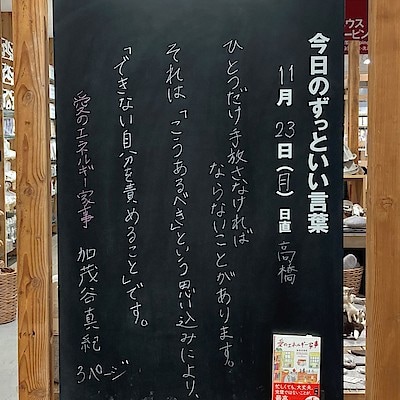 今日のずっといい言葉
11月23日(月) 日直 高橋
ひとつだけ手放さなければ
ならないことがあります。
それは「こうあるべき」という思い込みにより、
「できない自分を責めること」です。
愛のエネルギー家事 加茂谷真紀
3ページ
愛のエネルギー家事
忙しくても、大丈夫。
ウス
ービン